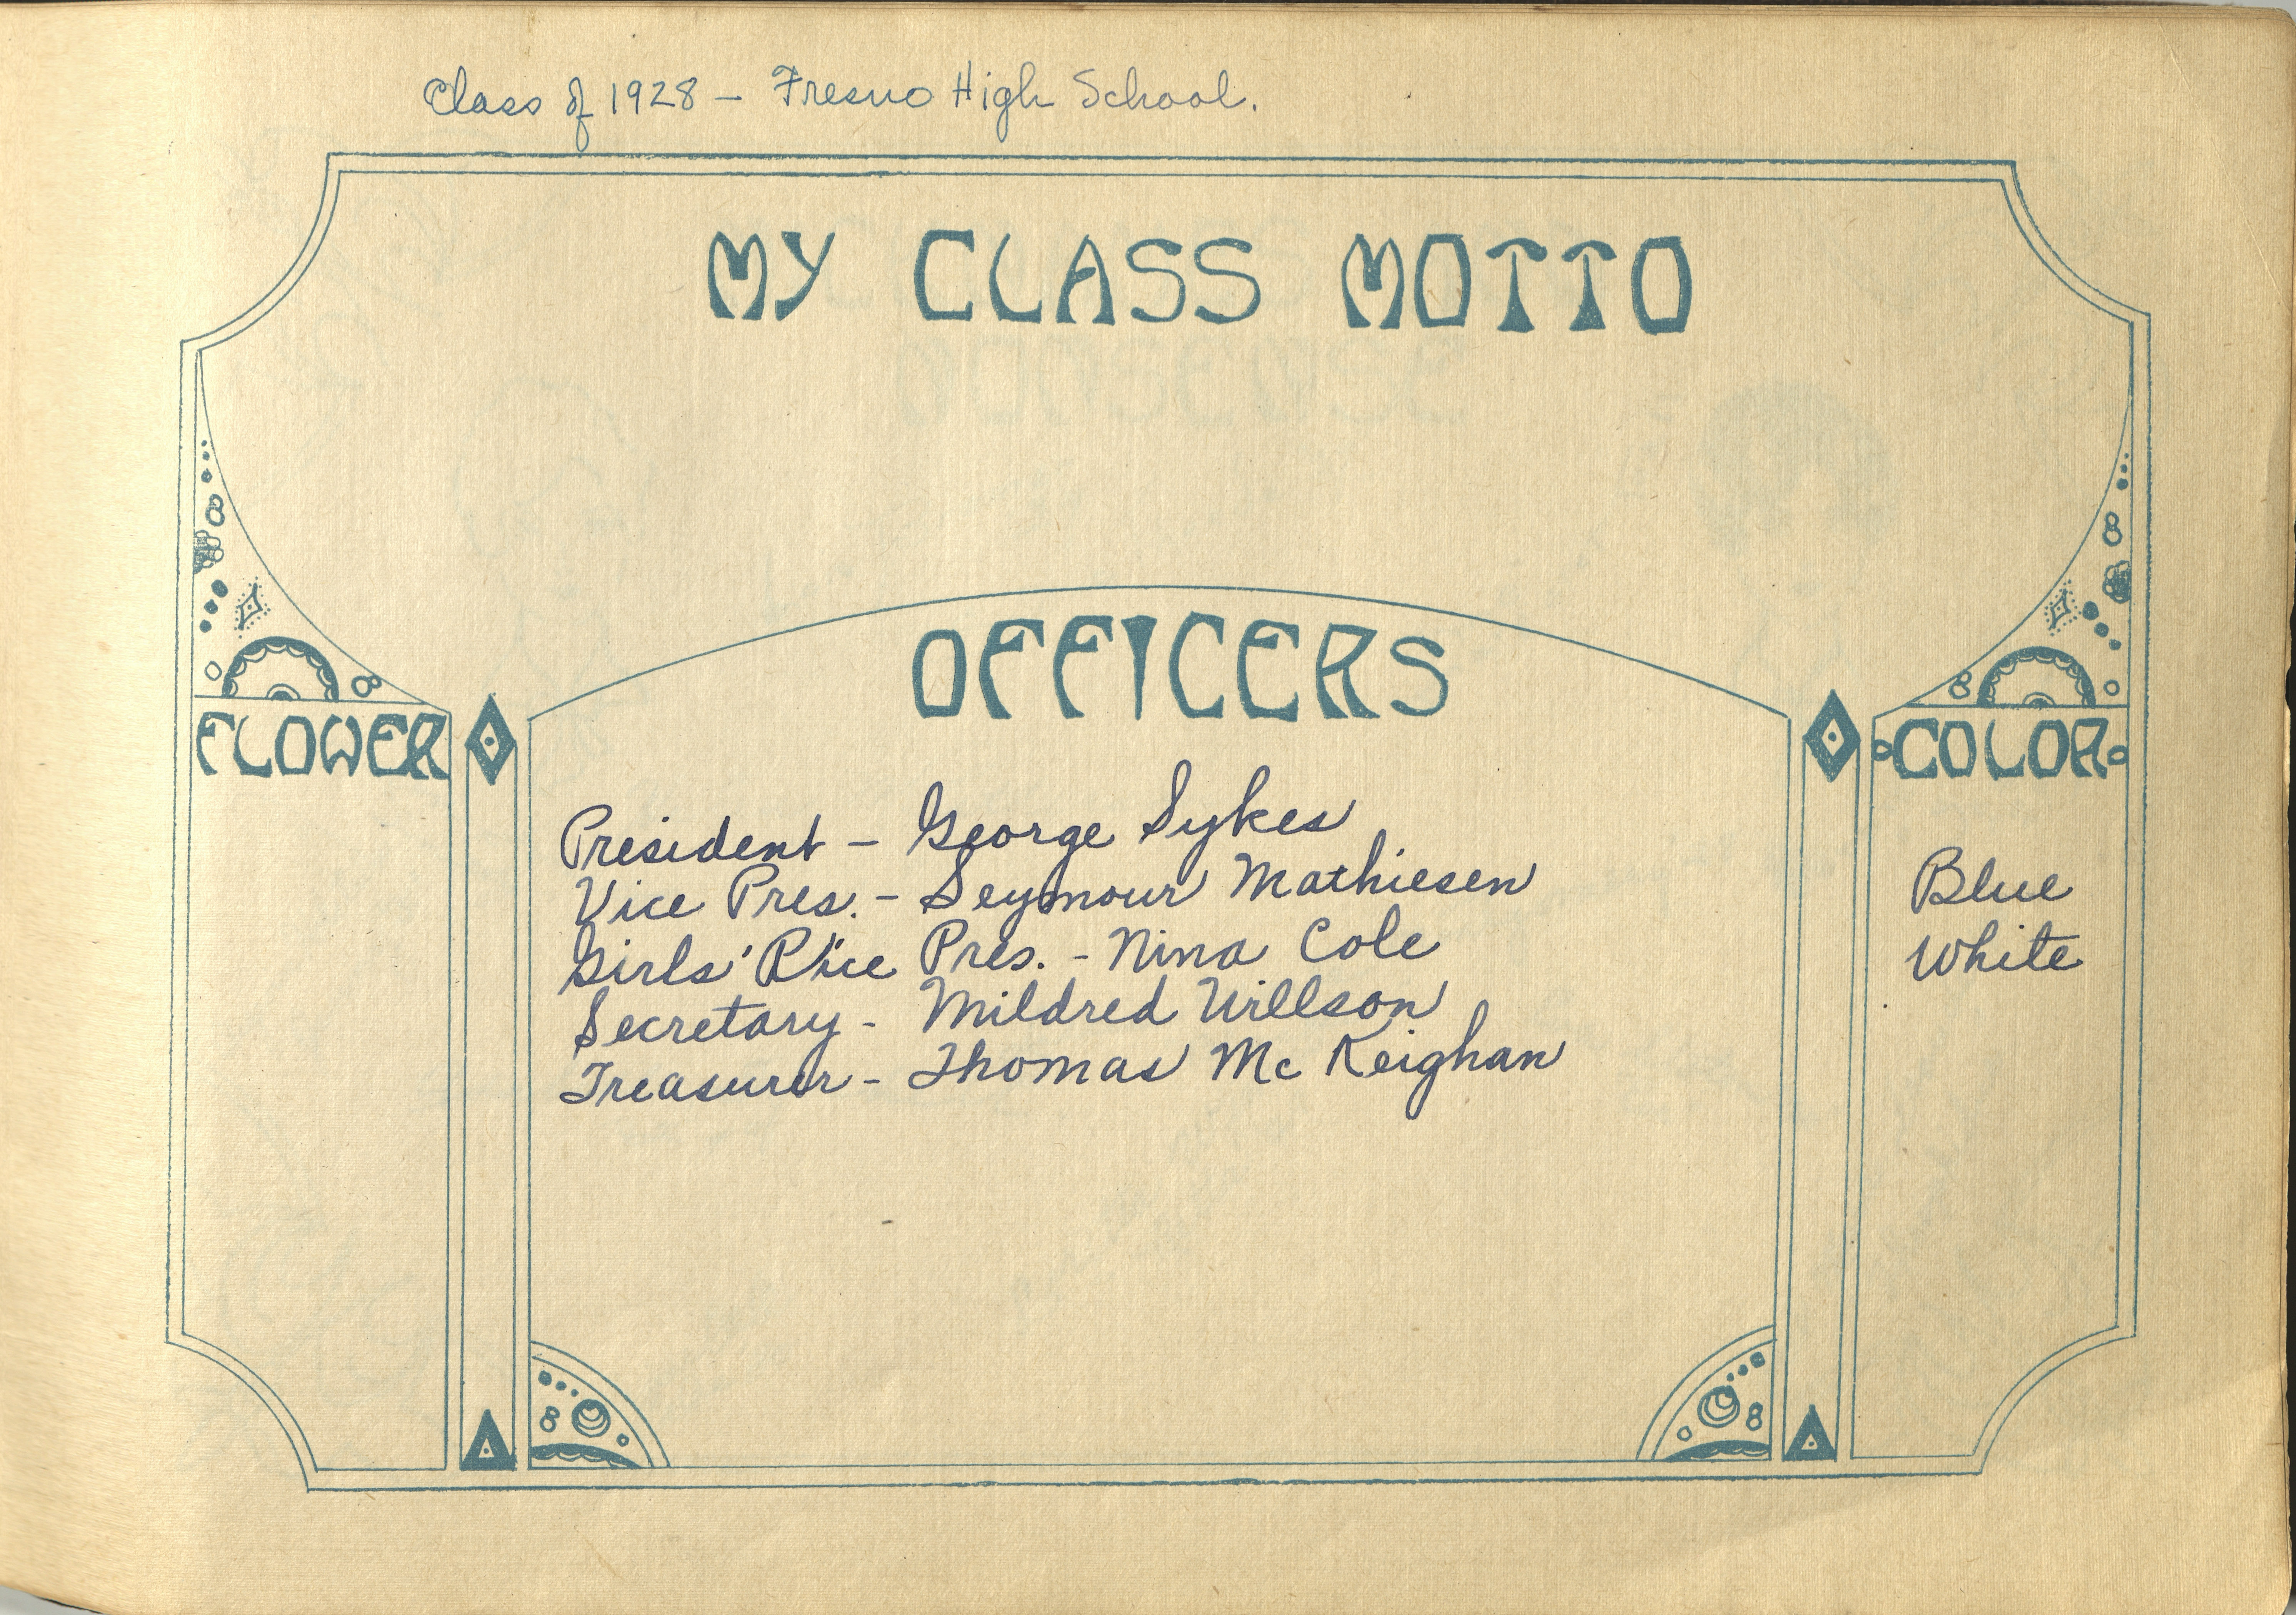 Class of 1928 – Fresno High School.
MY CLASS MOTTO
OFFICERS
FLOWER
COLOR
President – George Sykes
Vice Pres. – Seymour Mathiesen
Girls' Vice Pres. - Nina Cole
Secretary - Mildred Willson
Treasurer - Thomas Mc Keighan
Blue
White